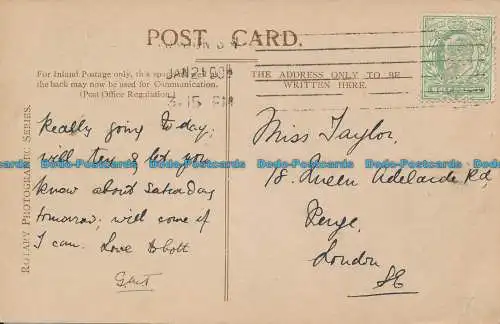 POST CARD.
JAN 21
3-15 PM
For Inland Postage only, this space as well as
the back may now be used for Communication.
(Post Office Regulation.)
THE ADDRESS ONLY TO BE
WRITTEN HERE.
ROTARY PHOTOGRAPHIC SERIES.
Really going to day;
will try & let you
know about Saturday
tomorrow; will come if
I can. Love
Gert
Miss Taylor,
18. Queen Adelaide Rd,
Penge,
London
SE
Bodo-Postcards Bodo-Postcards Bodo-Postcards Bodo-Postcards